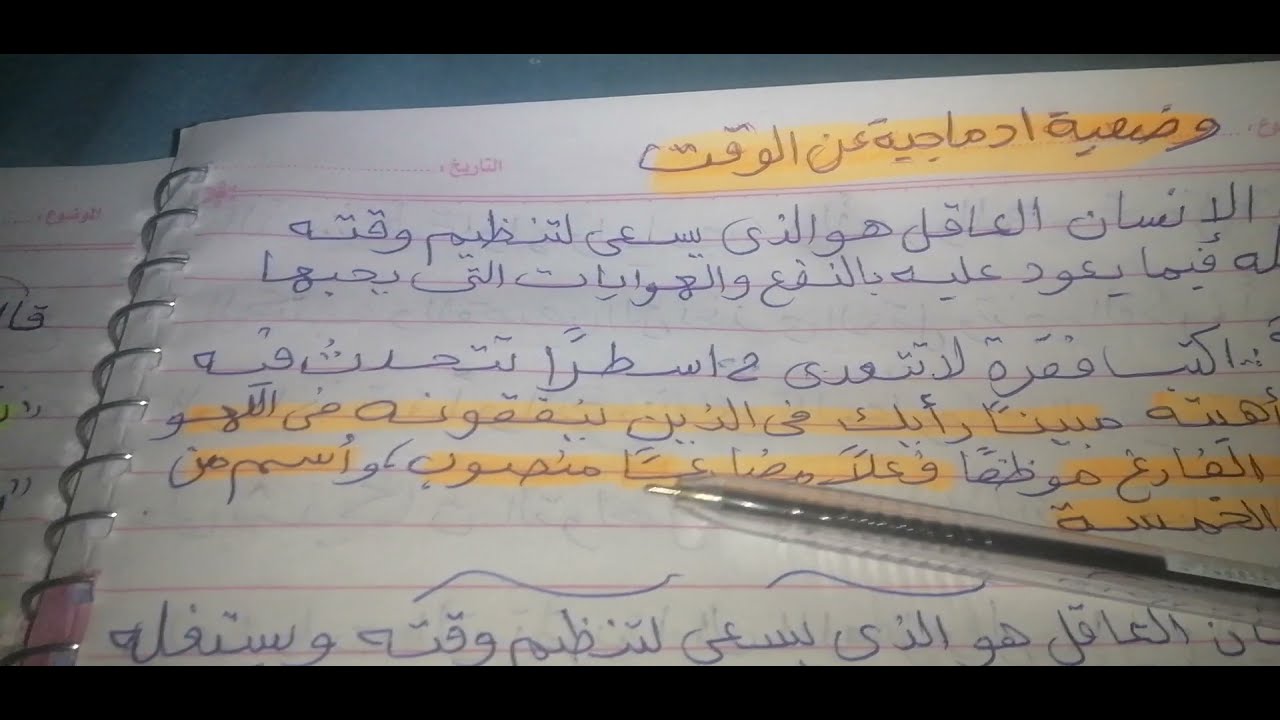 وضعية ادماجية عن الوقت
التاريخ:
الانسان العاقل هو الذي يسعى لتنظيم وقته
فيما يعود عليه بالنفع والهوايات التي يحبها
اكتب فقرة لا تتعدى 12 اسطرًا تتحدث فيه
أهميته مبينًا رأيك في الذين ينفقونه في اللهو
الفارغ موظفًا فعلاً مضارعًا منصوب، وأسم من
الخمسة
العاقل هو الذي يسعى لتنظيم وقته ويستغله
الموضوع: